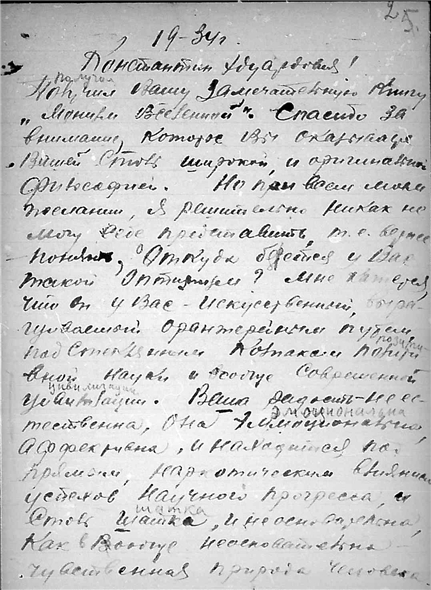 25.
19-34г.
Константин Эдуардович!
получил
Получил Вашу Замечательную книгу
„Монизм Вселенной". Спасибо за
внимание, которое Вы оказывает
Вашей столь широкой, и оригинальной
Философией. Но при всем моем
желании, я решительно никак не
могу себе представить, т.е. вернее
понять, откуда берется и Вас
такой Оптимизм? Мне кажется,
что он у Вас - Искуственный, выра
щиваемый оранжерейным путем
под стеклянным колпаком
позити
вной науки и вообще современной
цивилизации
цивилизации. Ваша радость - не ес-
эмоциональна
тественна, она Эммоциональна,
аффективна, и находится под
прямым, наркотическим влиянием
успехов научного прогресса, и
шатка
столь шатка, и неосновательна,
как вообще неосновательна
чувственная природа человека